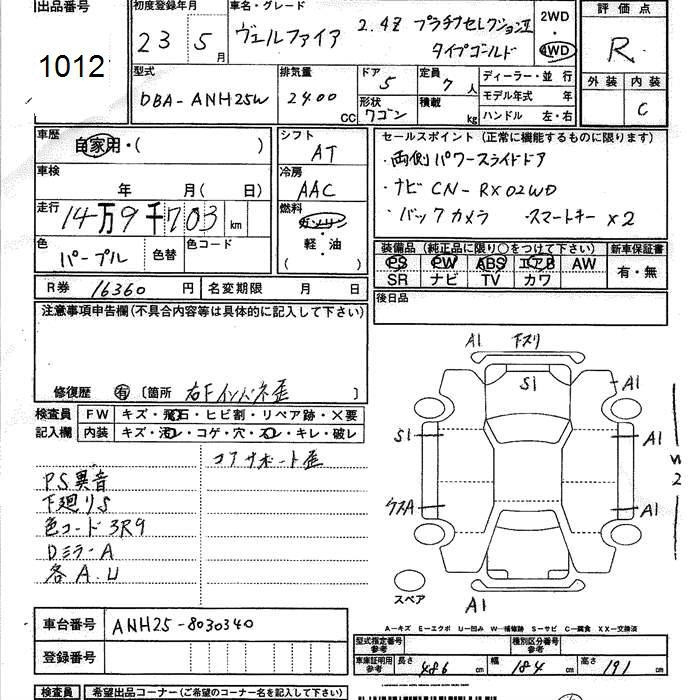 出品番号
1012
初度登録年月
23 5月
車名・グレード
ヴェルファイア 2.4Z プラチナセレクションⅡ
タイプゴールド
2WD
4WD
評価点
R
外装 内装
C
型式
DBA-ANH25W
排気量
2400 CC
ドア 5
形状 ワゴン
定員 7人
積載 kg
ディーラー・並行
モデル年式 年
ハンドル 左・右
車歴
自家用・( )
車検
年 月( 日)
走行
14万9千703 km
色
パープル
色替
色コード
シフト
AT
冷房
AAC
燃料
ガソリン
軽・油
( )
セールスポイント(正常に機能するものに限ります)
・両側パワースライドドア
・ナビ CN-RX02WD
・バックカメラ ・スマートキー x2
装備品(純正品に限り○をつけて下さい) 新車保証書
PS PW ABS エアB AW
SR ナビ TV カワ
有・無
R券 16360円 名変期限 月 日
後日品
注意事項申告欄(不具合内容等は具体的に記入して下さい)
修復歴 有 〔箇所 右Fインパネ歪 〕
検査員 FW キズ・飛石・ヒビ割・リペア跡・X要
記入欄 内装 キズ・汚レ・コゲ・穴・スレ・キレ・破レ
コアサポート歪
PS異音
下廻りS
色コード 3R9
Dミラー A
各A.U
A1 下スリ
S1
A1
S1
A1
W2
A1
スペア
A1
A―キズ E―エクボ U―凹み W―補修跡 S―サビ C―腐食 XX―交換済
車台番号 ANH25-8030340
登録番号
型式指定番号
参考
種別区分番号
参考
車庫証明用
参考
長さ 486 cm 幅 184 cm 高さ 191 cm
検査員 希望出品コーナー(ご希望のコーナー名を記入下さい)